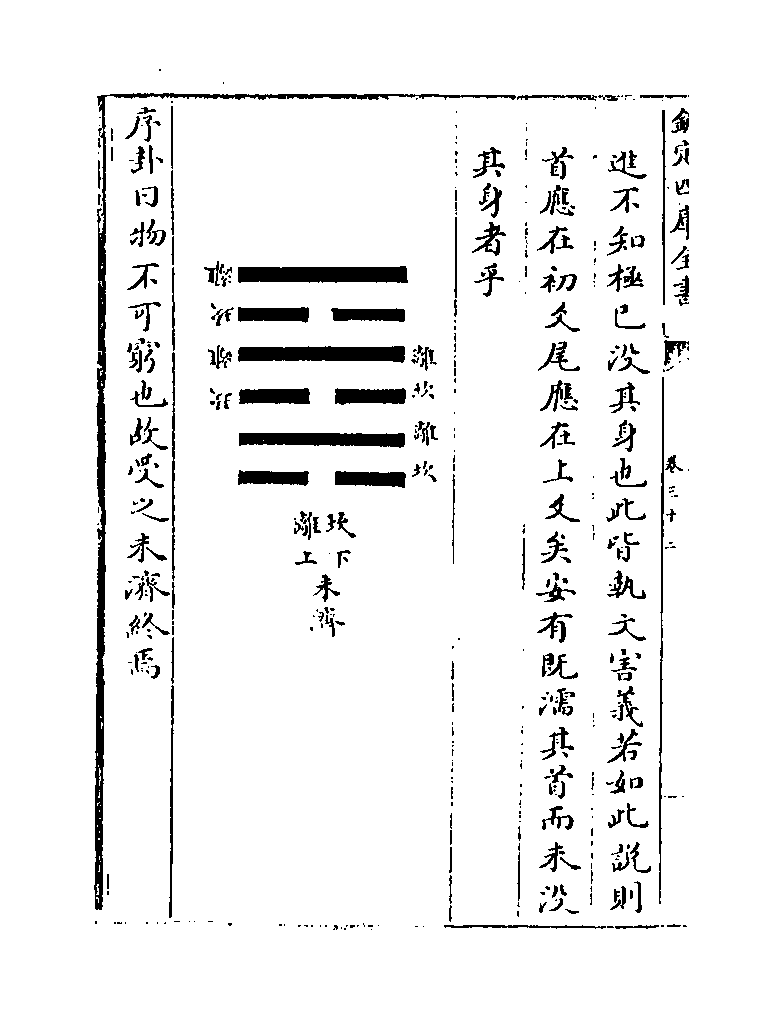 欽定四庫全書
卷三十二
進不知極已没其身也此皆執文害義若如此説則
首應在初爻尾應在上爻矣安有既濡其首而未没
其身者乎
離
坎
離
坎
離
坎
離
坎
坎下
離上
未濟
序卦曰物不可窮也故受之未濟終焉